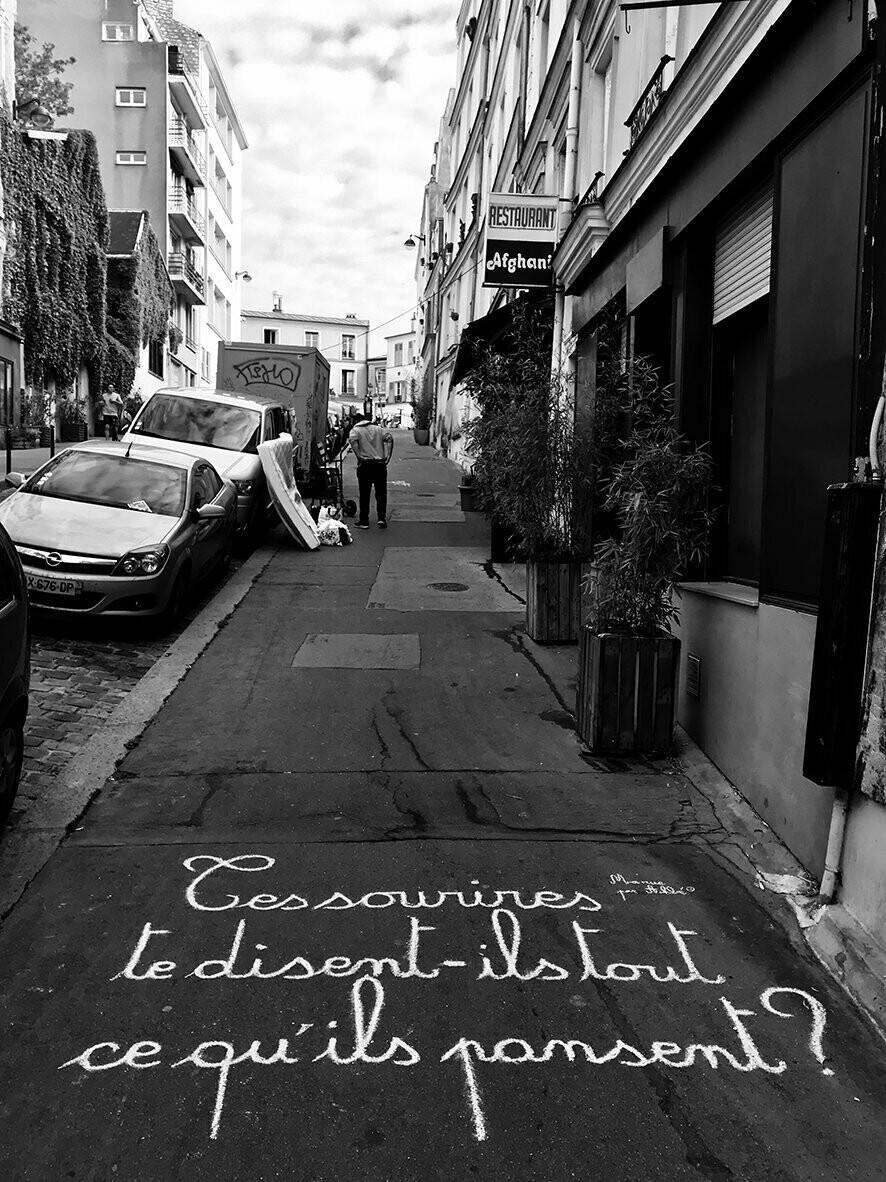 RESTAURANT
Afghani
676-DP
Tes sourires
te disent-ils tout
ce qu'ils pansent ?